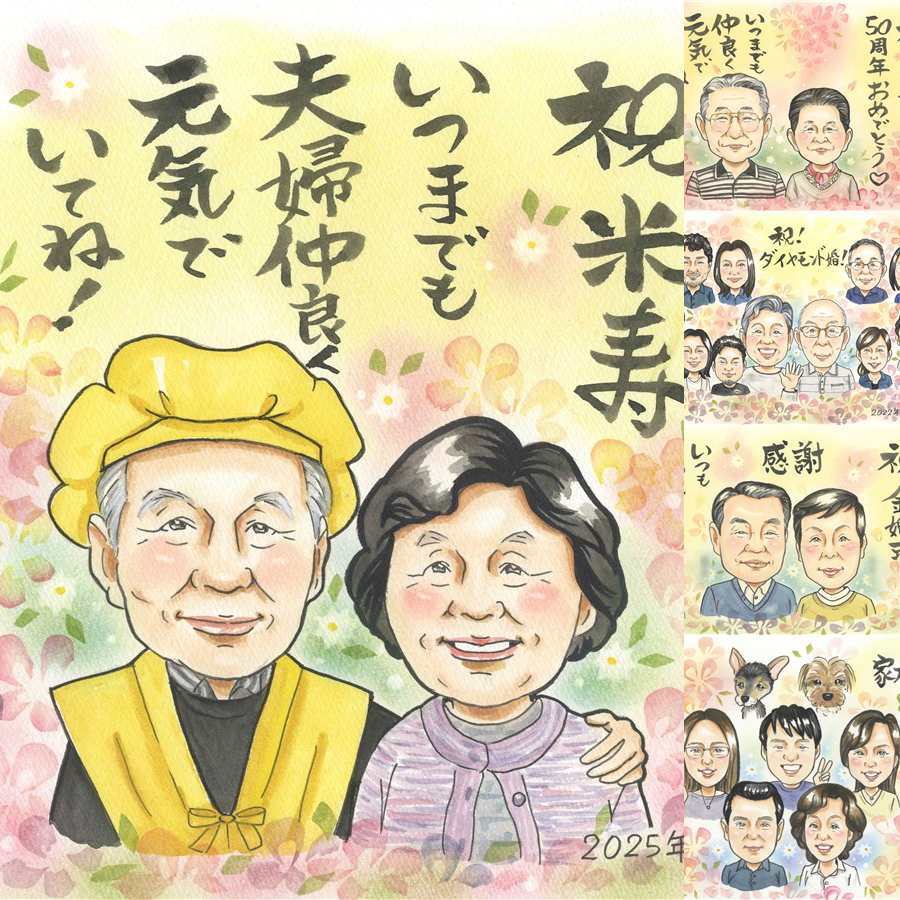 祝米寿
いつまでも
夫婦仲良く
元気で
いてね！
2025年
50周年おめでとう♡
いつまでも
仲良く
元気で
祝！
ダイヤモンド婚！
2022年
感謝
いつも